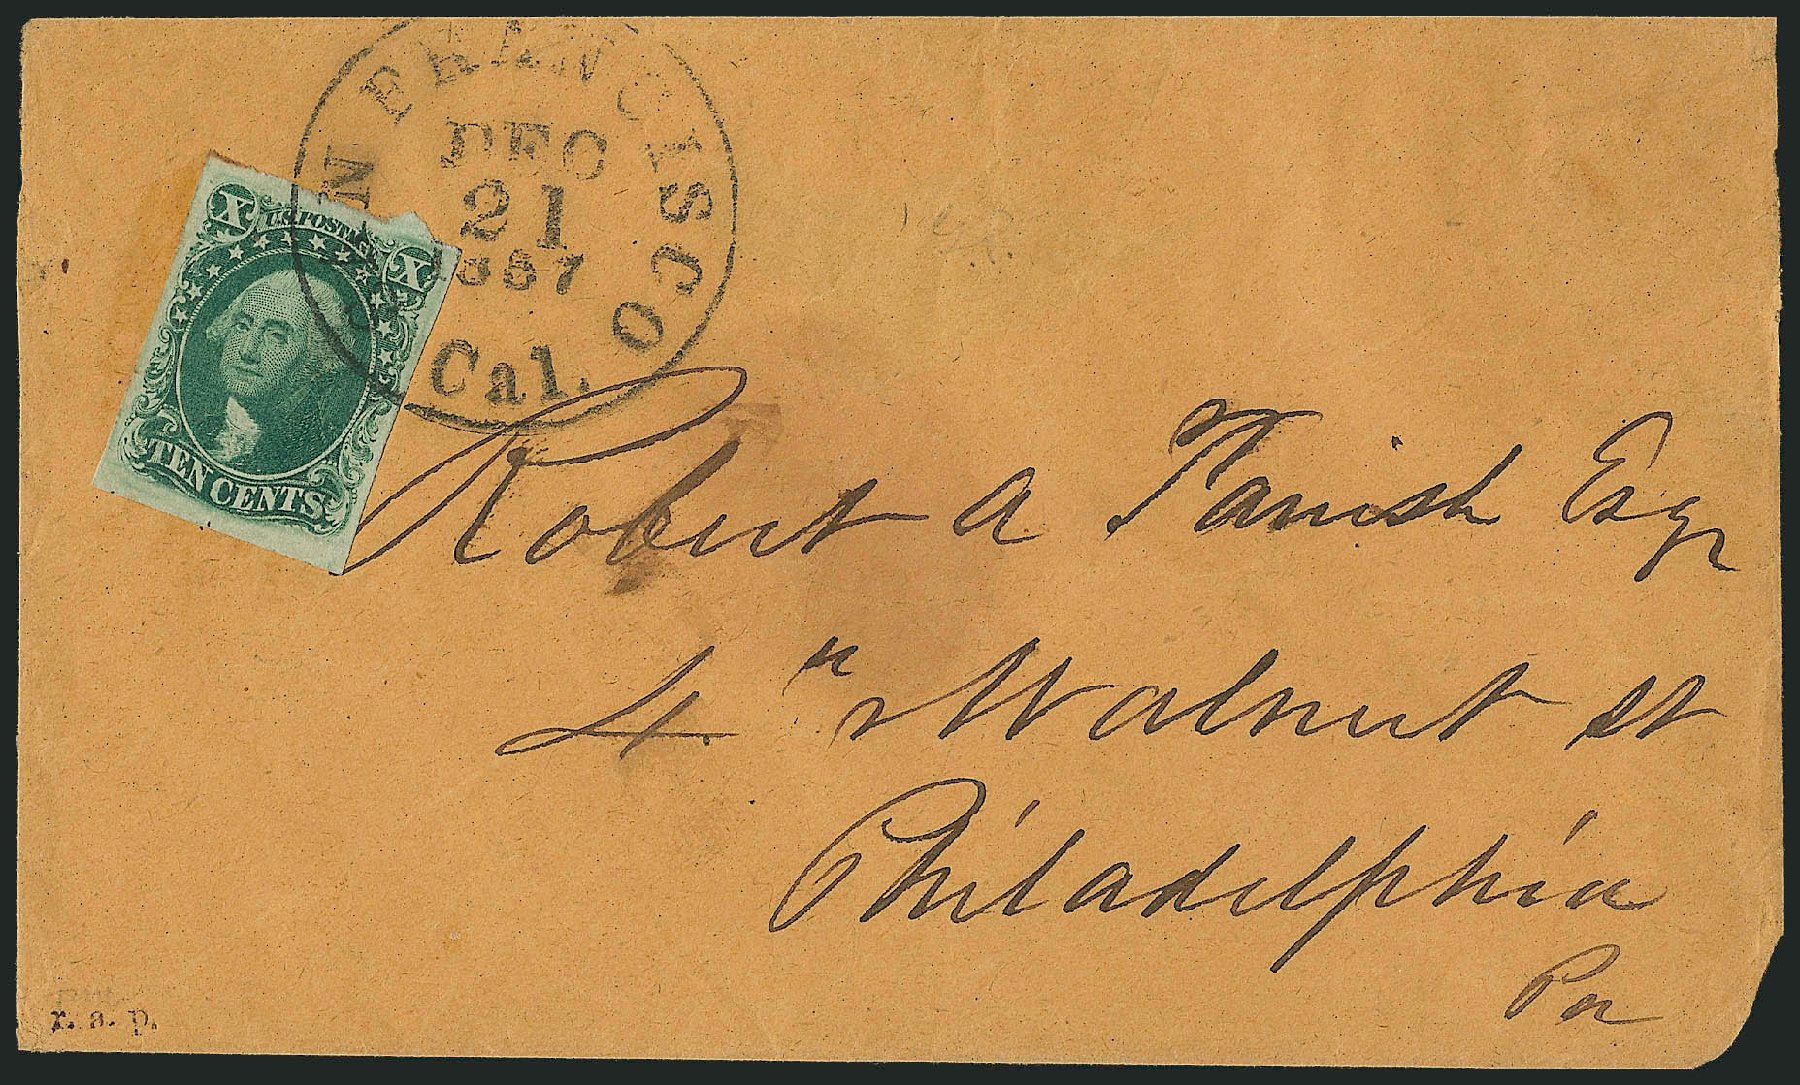 X U.S. POSTAGE X
TEN CENTS.
SAN FRANCISCO
DEC
21
1857
Cal.
Robert a Parish Esqr
4 " Walnut st
Philadelphia
Pa
r. a. p.